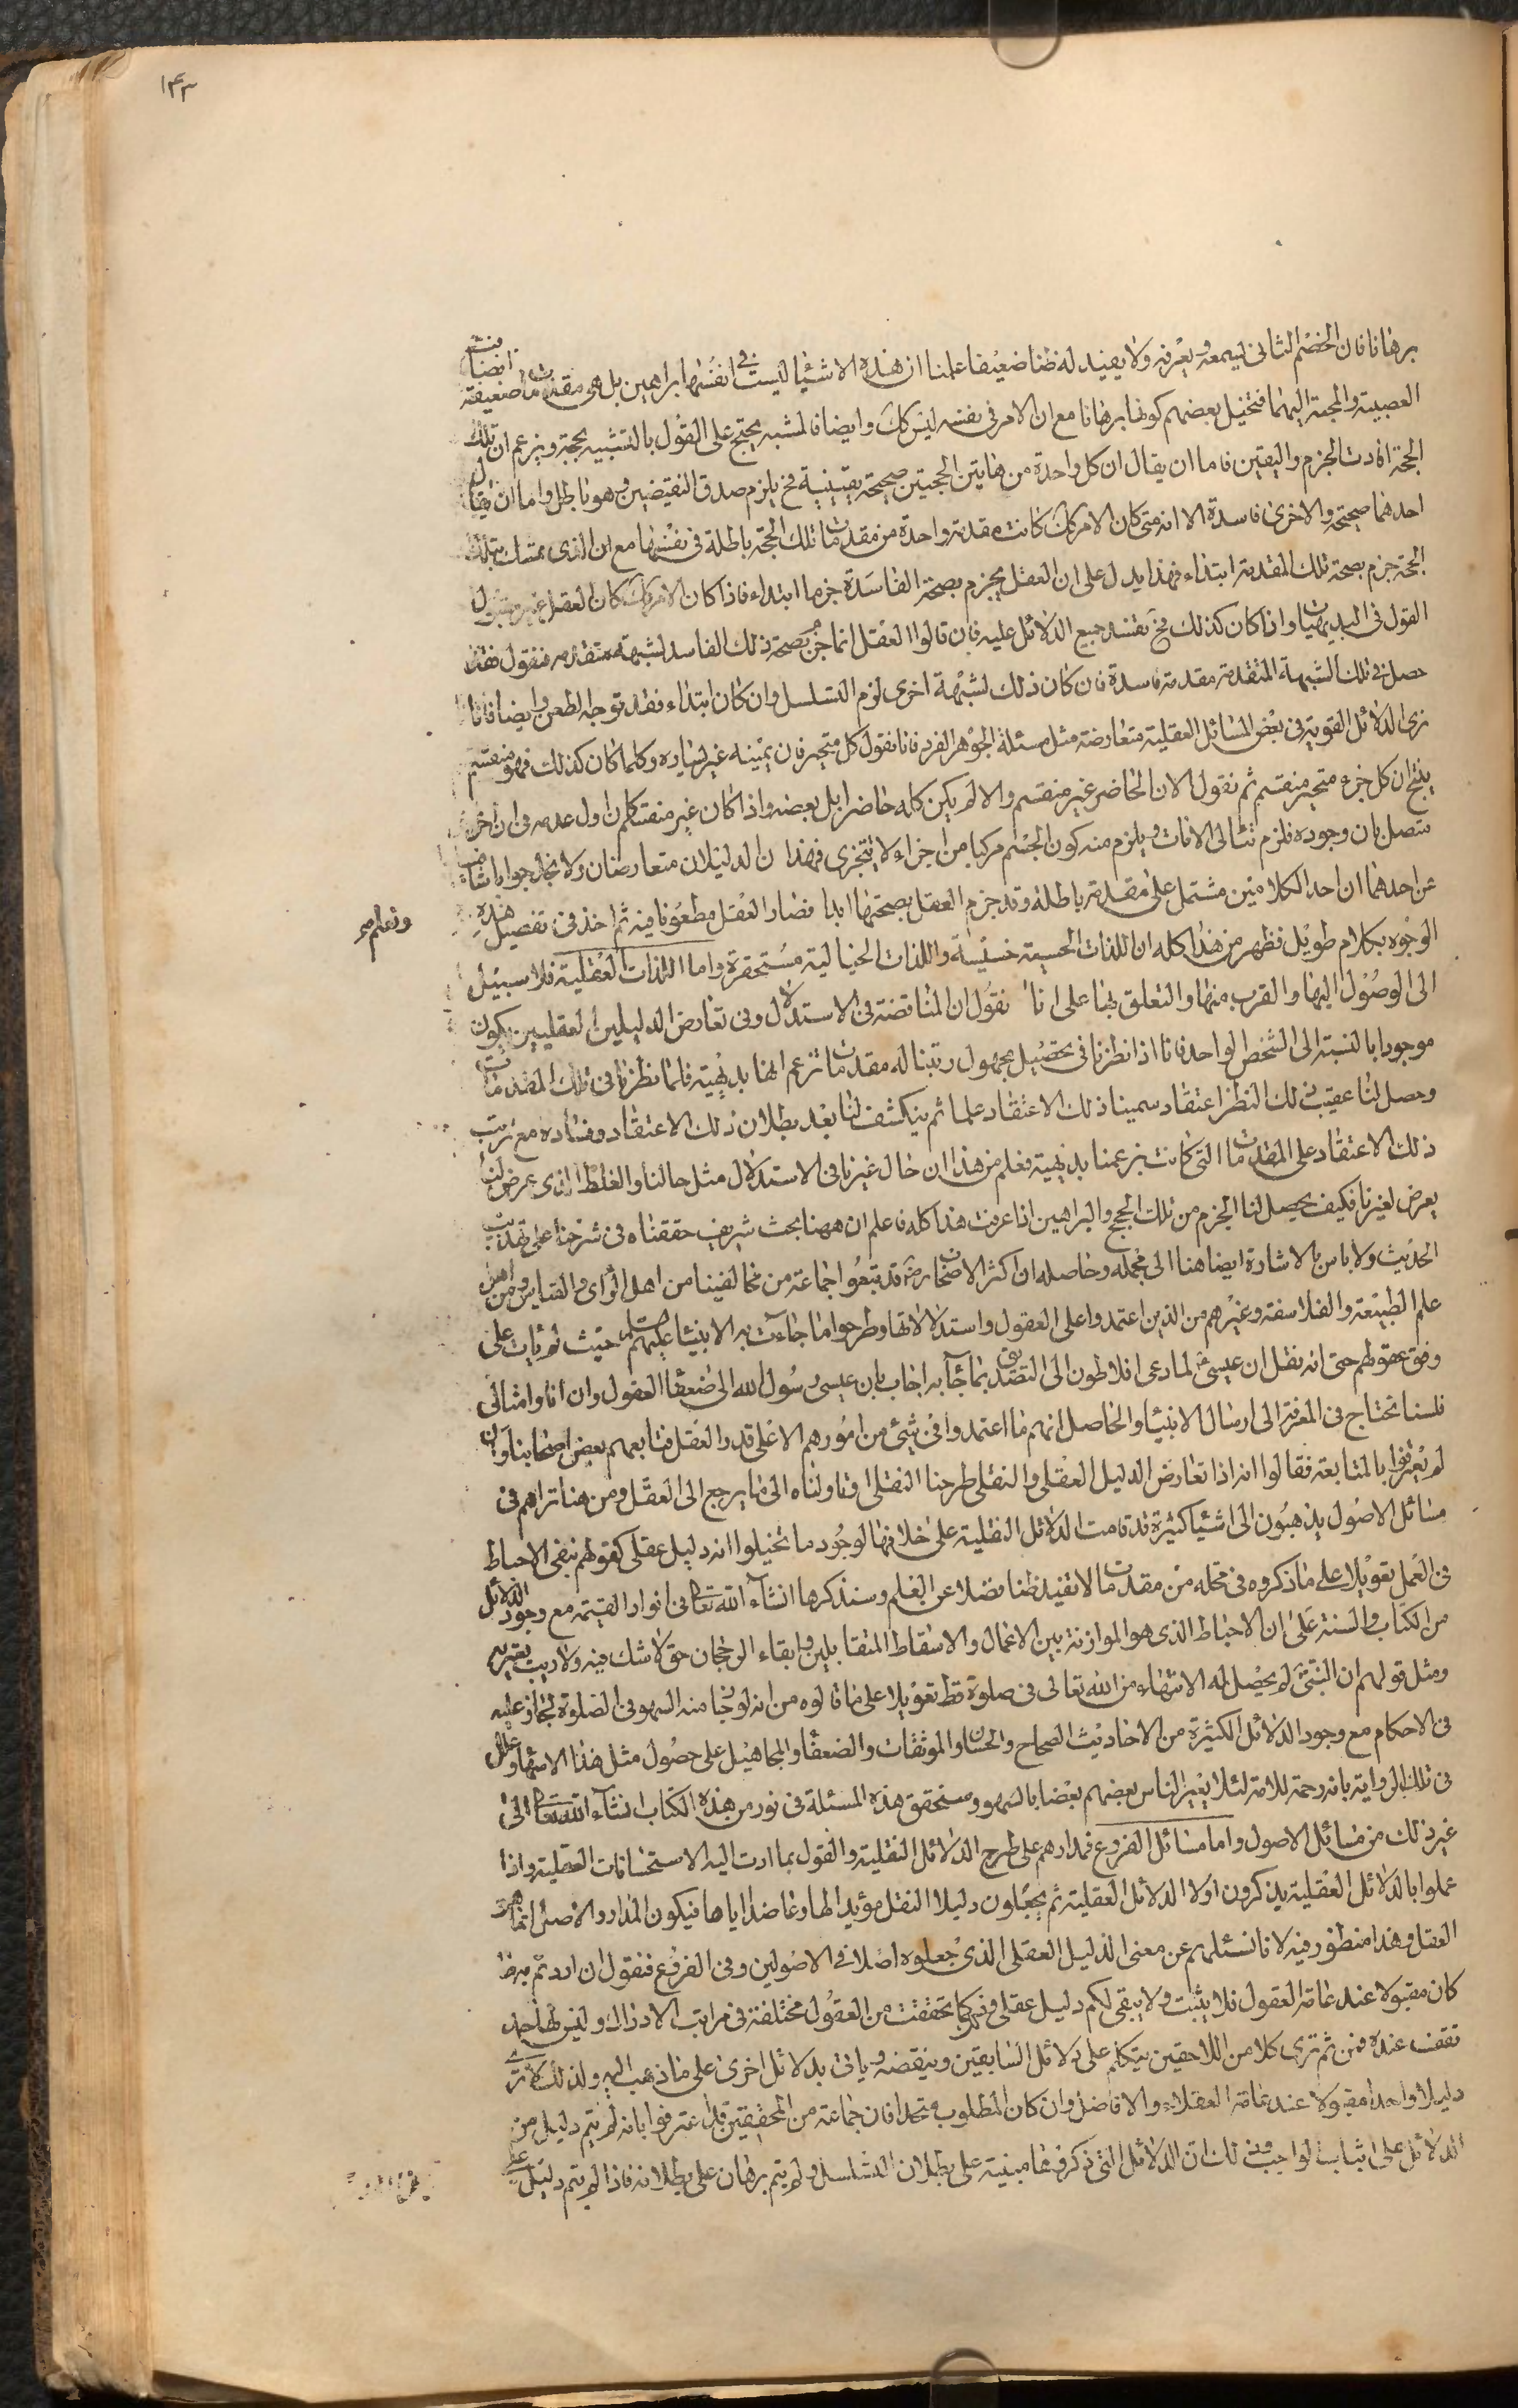 ١۴٣
برهانا فان الخصم الثانى يسمعه ويعرفه ولا يفيد له ظنا ضعيفا علمنا ان هذه الاشياء ليست فى انفسها براهين بل هى مقدمات ضعيفة انضافت
العصبية والمحبة اليها فتخيل بعضهم كونها برهانا مع ان الامر فى نفسه ليس كك وايضا فالمشبه يحتج على القول بالتشبيه بحجة ويزعم ان تلك
الحجة افادت الجزم واليقين فاما ان يقال ان كل واحدة من هاتين الحجتين صحيحة يقينية فح يلزم صدق النقيضين وهو باطل واما ان يقال
احدهما صحيحة والاخرى فاسدة الا انه متى كان الامر كك كانت مقدمة واحدة من مقدمات تلك الحجة باطلة فى نفسها مع ان الذى تمسك بتلك
الحجة جزم بصحة تلك المقدمة ابتداء فهذا يدل على ان العقل يجزم بصحة الفاسدة جزما ابتداء فاذا كان الامر كك كان العقل غير مقبول
القول فى البديهيات واذا كان كذلك فح تفسد جميع الدلائل عليه فان قالوا العقل انما جزم بصحة ذلك الفاسد لشبهة متقدمه فنقول فقد
حصل فى تلك الشبهة المتقدمة مقدمة فاسدة فان كان ذلك لشبهة اخرى لزم التسلسل وان كان ابتداء فقد توجه الطعن وايضا فانا
نرى الدلائل القوية فى بعض المسائل العقلية متعارضة مثل مسئلة الجوهر الفرد فانا نقول كل متحيز فان يمينه غير يساره وكلما كان كذلك فهو منقسم
ينتج ان كل جزء متحيز منقسم ثم نقول الان الحاضر غير منقسم والا لم يكن كله حاضرا بل بعضه واذا كان غير منقسم كان اول عدمه فى ان اخر
متصل بان وجوده فلزم تتالى الانات ويلزم منه كون الجسم مركبا من اجزاء لا يتجزى فهذان الدليلان متعارضان ولا نجد جوابا شافيا
عن احدهما ان احد الكلامين مشتمل على مقدمة باطلة وقد جزم العقل بصحتها ابدا فصار العقل مطعونا فيه ثم اخذ فى تفصيل هذه
ونعلم صح
الوجوه بكلام طويل فظهر من هذا كله ان اللذات الحسية خسيسة واللذات الخيالية مستحقرة واما اللذات العقلية فلا سبيل
الى الوصول اليها والقرب منها والتعلق بها على انا نقول ان المناقضة فى الاستدلال وفى تعارض الدليلين العقليين يكون
موجودا بالنسبة الى الشخص الواحد فانا اذا نظرنا فى تحصيل مجهول رتبنا له مقدمات نزعم انها بديهية فلما نظرنا فى تلك المقدمات
وحصل لنا عقيب ذلك النظر اعتقاد سمينا ذلك الاعتقاد علما ثم ينكشف لنا بعد بطلان ذلك الاعتقاد وفساده مع ترتب
ذلك الاعتقاد على المقدمات التى كانت بزعمنا بديهية فعلم من هذا ان حال غيرنا فى الاستدلال مثل حالنا والغلط الذى عرض لنا
يعرض لغيرنا فكيف يحصل لنا الجزم من تلك الحجج والبراهين اذا عرفت هذا كله فاعلم ان ههنا بحث شريف حققناه فى شرحنا على تهذيب
الحديث ولا باس بالاشارة ايضا هنا الى مجمله وحاصله ان اكثر الاصحاب رض قد تبعوا جماعة من مخالفينا من اهل الراى والقياس ومن اهل
علم الطبيعة والفلاسفة وغيرهم من الذين اعتمدوا على العقول واستدلالاتها وطرحوا ما جاءت به الانبياء عليهم السلم حيث لم يات على
وفق عقولهم حتى انه نقل ان عيسى ع لما دعى افلاطون الى التصديق بما جاء به اجاب بان عيسى رسول الله الى ضعفاء العقول وان انا وامثالى
فلسنا نحتاج فى المعرفة الى ارسال الانبياء والحاصل انهم ما اعتمدوا فى شئ من امورهم الا على قدر العقل فتابعهم بعض اصحابنا وان
لم يعترفوا بالمتابعة فقالوا انه اذا تعارض الدليل العقلى والنقلى طرحنا النقلى او تاولناه الى ما يرجع الى العقل ومن هنا تراهم فى
مسائل الاصول يذهبون الى اشياء كثيرة قد قامت الدلائل النقلية على خلافها لوجود ما تخيلوا انه دليل عقلى كقولهم بنفى الاحباط
فى العمل تعويلا على ما ذكروه فى محله من مقدمات لا تفيد ظنا فضلا عن العلم وسنذكرها انشاء الله تعالى فى انوار القيمة مع وجود الدلائل
من الكتاب والسنة على ان الاحباط الذى هو الموازنة بين الاعمال والاسقاط المتقابلين وابقاء الرجحان حق لا شك فيه ولا ريب يعتريه
ومثل قولهم ان النبى ص لم يحصل له الاسهاء من الله تعالى فى صلوة قط تعويلا على ما قالوه من انه لو جاز منه السهو فى الصلوة لجاز عليه
فى الاحكام مع وجود الدلائل الكثيرة من الاحاديث الصحاح والحسان والموثقات والضعفاء والمجاهيل على حصول مثل هذا الاسهاء وعلل
فى تلك الرواية بانه رحمة للامة لئلا يعير الناس بعضهم بعضا بالسهو وسنحقق هذه المسئلة فى نور من هذه الكتاب انشاء الله تعالى الى
غير ذلك من مسائل الاصول واما مسائل الفروع فمدارهم على طرح الدلائل النقلية والقول بما ادت اليه الاستحسانات العقلية واذا
عملوا بالدلائل العقلية يذكرون اولا الدلائل العقلية ثم يجعلون دليلا النقل مؤيدا لها وعاضدا اياها فيكون المدار والاصل انما هو
العقل وهذا منظور فيه لانا نسئلهم عن معنى الدليل العقلى الذى جعلوه اصلا فى الاصولين وفى الفروع فنقول ان اردتم به ما
كان مقبولا عند عامة العقول فلا يثبت ولا يبقى لكم دليل عقلى وذلك كما تحققت من العقول مختلفة فى مراتب الادراك وليس لها حد
تقف عنده فمن ثم ترى كلا من اللاحقين يتكلم على دلائل السابقين وينقضه وياتى بدلائل اخرى على ما ذهب اليه ولذلك لا ترى
دليلا واحدا مقبولا عند عامة العقلاء والافاضل وان كان المطلوب متحدا فان جماعة من المحققين قد اعترفوا بانه لم يتم دليل من
الدلائل على اثبات الواجب وذلك ان الدلائل التى ذكروها مبنية على بطلان التسلسل ولم يتم برهان على بطلانه فاذا لم يتم دليل على